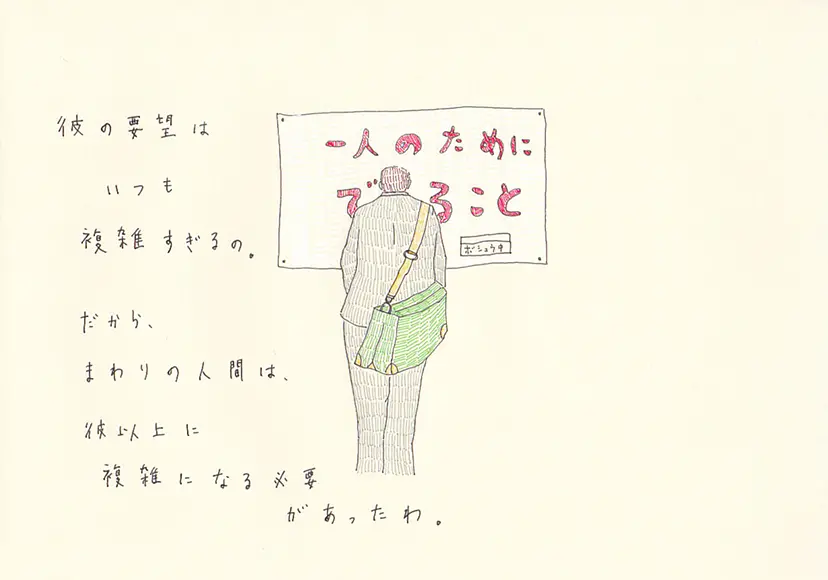 彼の要望は
いつも
複雑すぎるの。
だから、
まわりの人間は、
彼以上に
複雑になる必要
があったわ。
一人のために
で ること
ボシュウ中